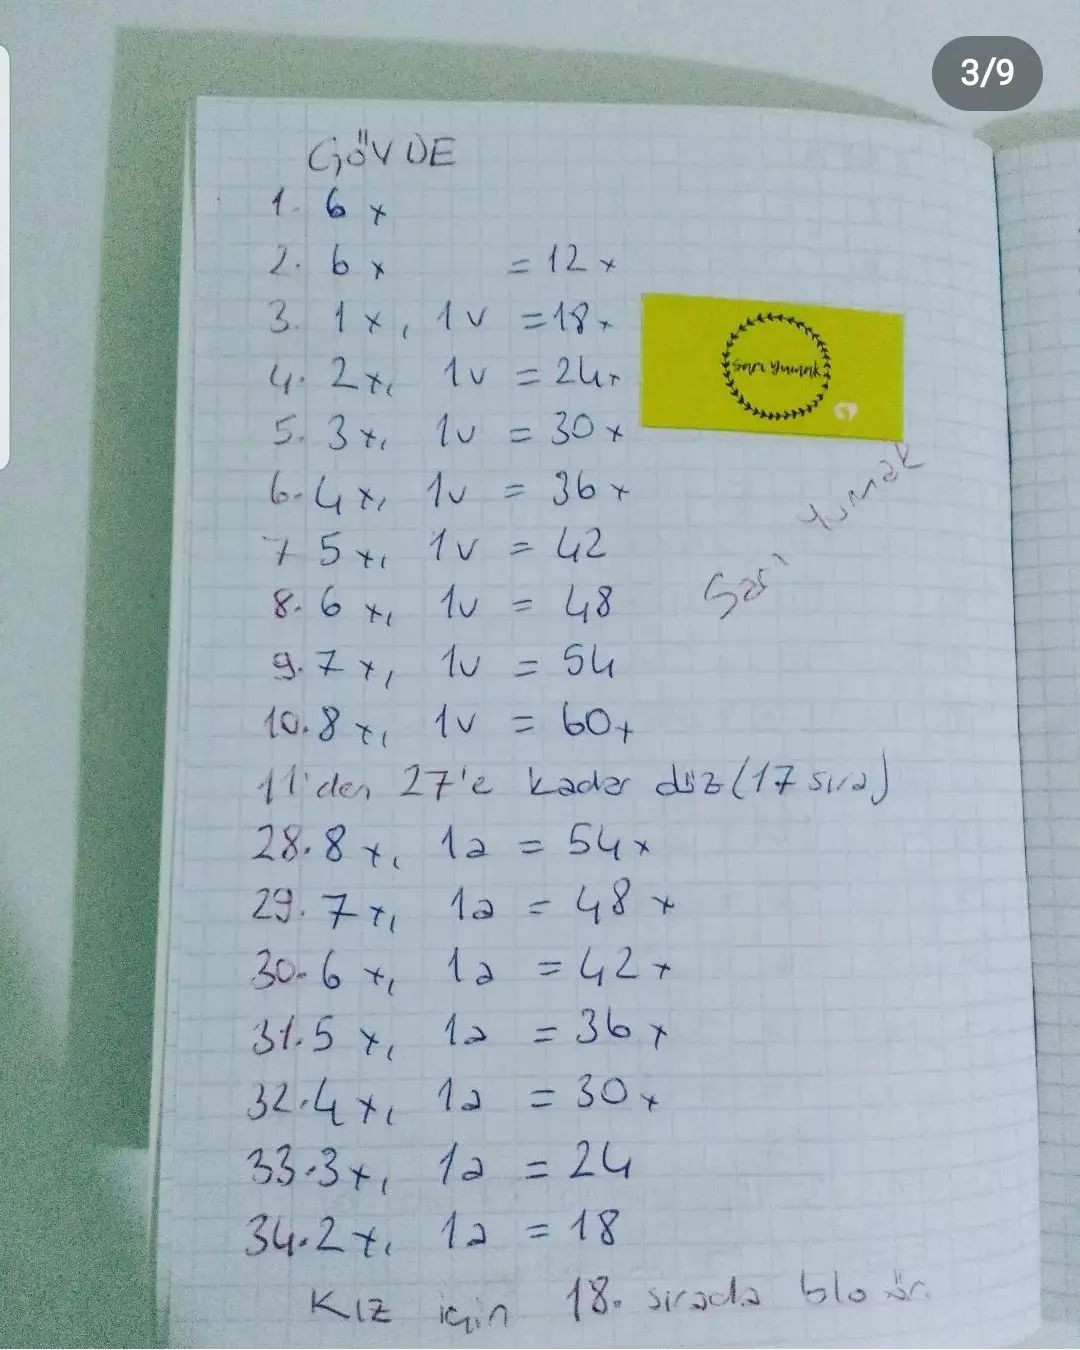 3/9
GÖVDE
1. 6 x
2. 6 x = 12 x
3. 1 x, 1v = 18 x
4. 2 x, 1v = 24 x
5. 3 x, 1v = 30 x
6. 4 x, 1v = 36 x
7 5 x, 1v = 42
8. 6 x, 1v = 48
9. 7 x, 1v = 54
10. 8 x, 1v = 60 x
Sarı Yumak
Sarı Yumak
11'den 27'e kadar düz (17 sıra)
28. 8 x, 1a = 54 x
29. 7 x, 1a = 48 x
30. 6 x, 1a = 42 x
31. 5 x, 1a = 36 x
32. 4 x, 1a = 30 x
33. 3 x, 1a = 24
34. 2 x, 1a = 18
KIZ için 18. sırada blo ör.